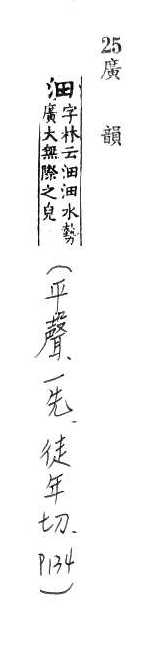 25廣韻
沺字林云沺沺水勢
廣大無際之皃
(平聲、一先、徒年切、P134)